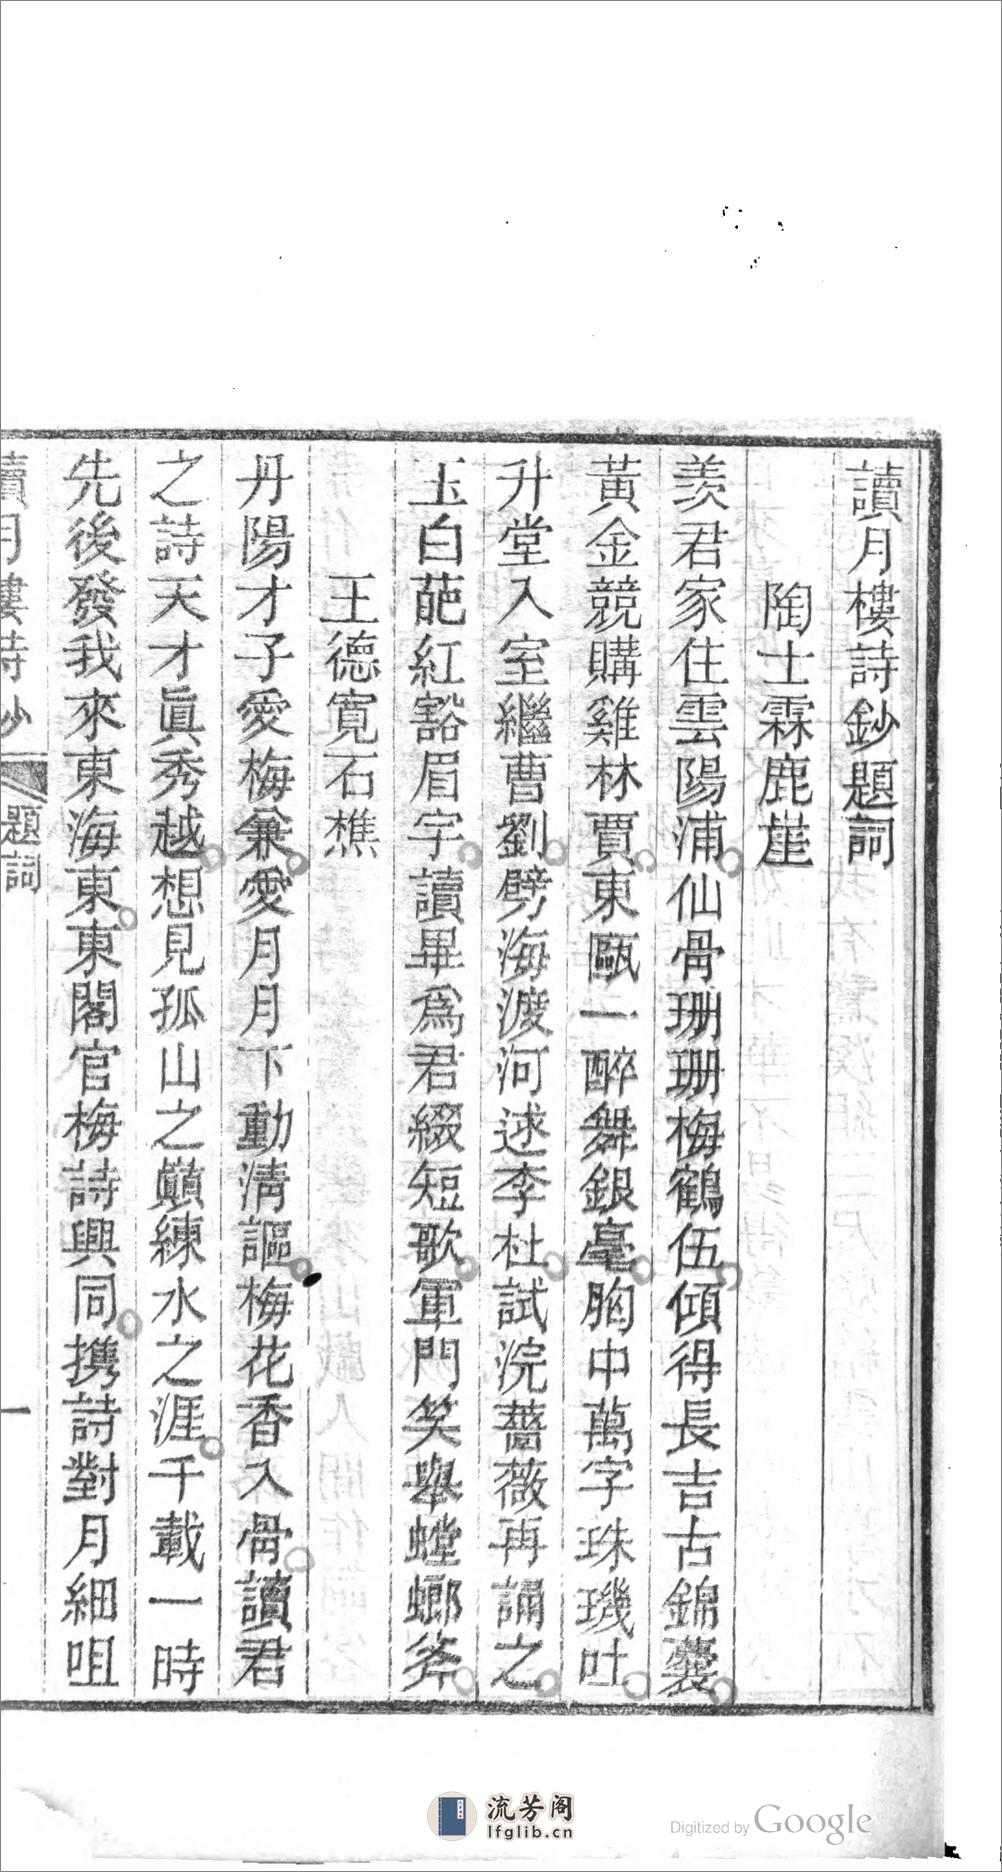 讀月樓詩鈔題詞
陶士霖鹿崖
羨君家住雲陽浦仙骨珊珊梅鶴伍傾得長吉古錦囊
黃金競購雞林賈東甌一醉舞銀毫胸中萬字珠璣吐
升堂入室繼曹劉劈海渡河逑李杜試浣薔薇再誦之
玉白葩紅豁眉宇讀畢爲君綴短歌軍門笑舉螳螂斧
王德寬石樵
丹陽才子愛梅兼愛月月下動淸謳梅花香入骨讀君
之詩天才眞秀越想見孤山之巔練水之涯千載一時
先後發我來東海東東閣官梅詩興同携詩對月細咀
讀月樓詩鈔 題詞 一
流芳阁
lfglib.cn
Digitized by Google